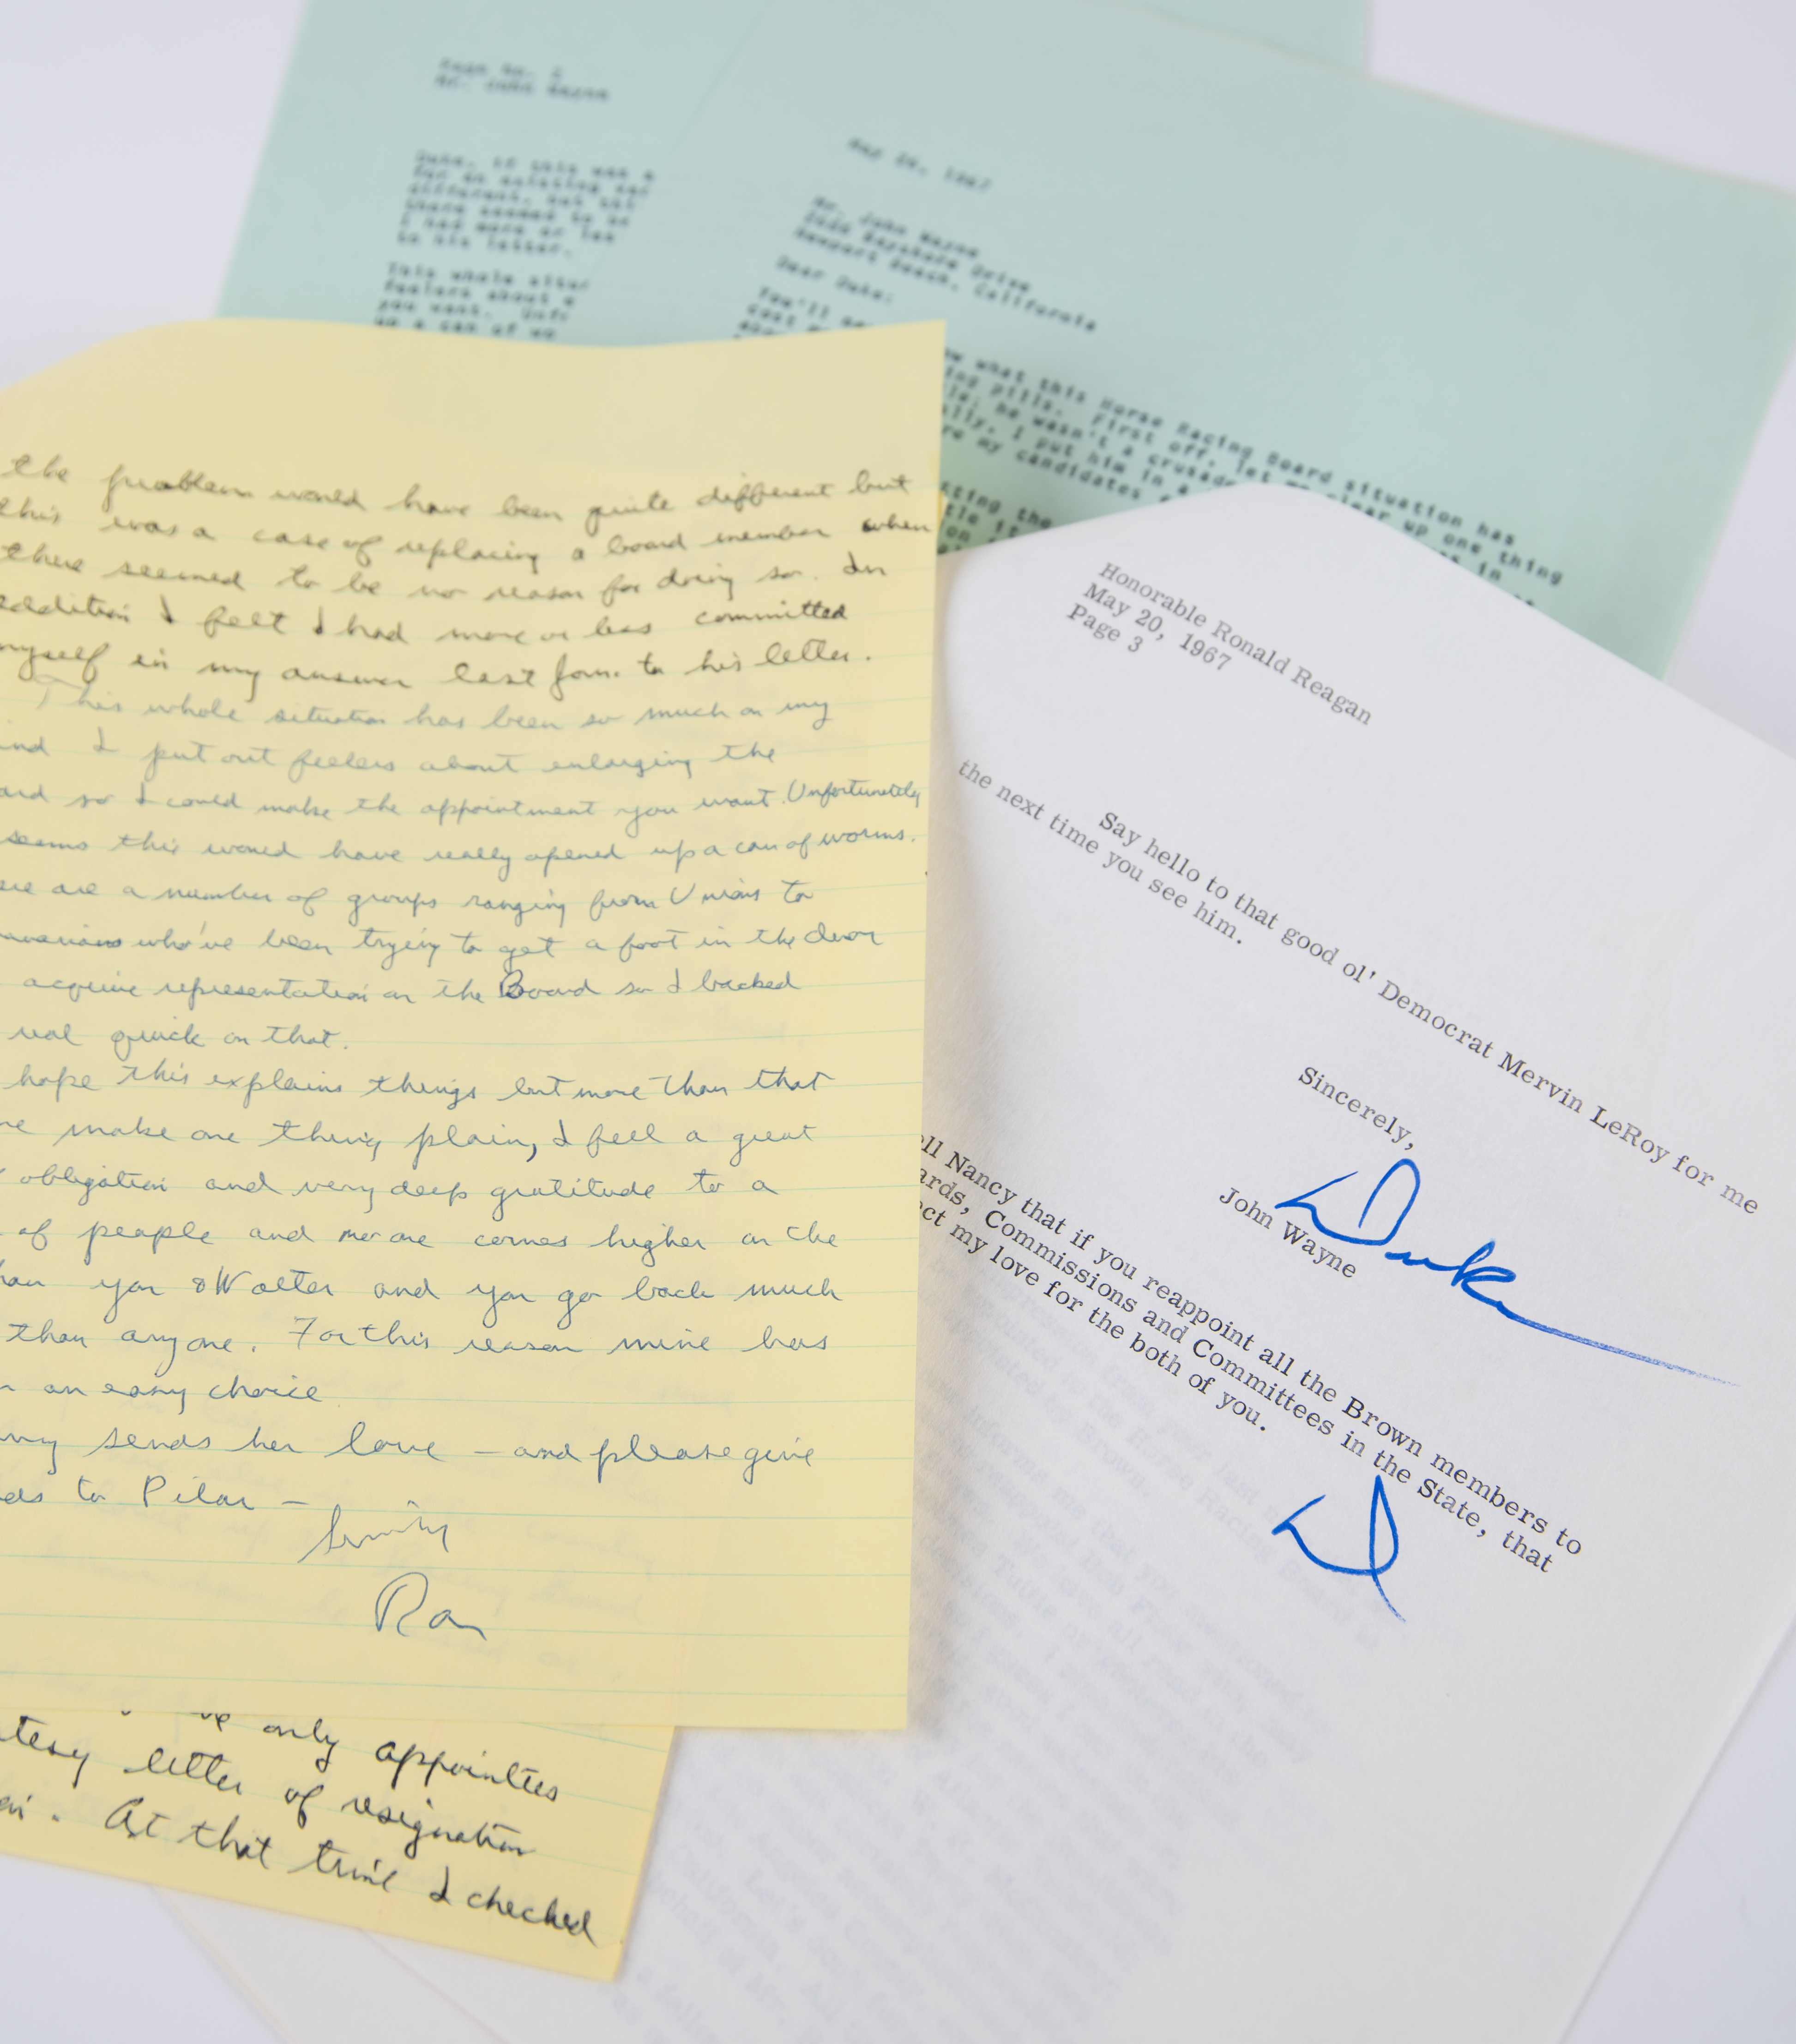 Page No. 2
Mr. John Wayne
Duke, if this was a
for an existing
different, but
there seemed to be
I had more or les
to his letter.
This whole situa
feelers about e
you want. Unfo
up a can of wo
May 1967
Mr. John Wayne
Bayshore Drive
Newport Beach, California
Dear Duke:
You'll
cost
w what this Horse Racing Board situation has
ing pills. First off, let me clear up one thing
he wasn't a crusad
ally, I put him in a
re my candidates
the problem would have been quite different but
this was a case of replacing a board member when
there seemed to be no reason for doing so. In
addition I felt I had more or less committed
myself in my answer last to his letter.
This whole situation has been so much on my
ind I put out feelers about enlarging the
ard so I could make the appointment you want. Unfortunately
seems this would have really opened up a can of worms.
ere are a number of groups ranging from Unions to
who've been trying to get a foot in the door
acquire representation on the Board so I backed
real quick on that.
hope this explains things but more than that
me make one thing plain, I feel a great
obligation and very deep gratitude to a
of people and no one comes higher on the
han you & Walter and you go back much
than anyone. For this reason mine has
n an easy choice
ncy sends her love – and please give
ds to Pilar –
Sincerely
Ron
only appointees
tesy letter of resignation
At that time I checked
Honorable Ronald Reagan
May 20, 1967
Page 3
Say hello to that good ol' Democrat Mervin LeRoy for me
the next time you see him.
Sincerely,
Duke
John Wayne
ell Nancy that if you reappoint all the Brown members to
ards, Commissions and Committees in the State, that
ect my love for the both of you.
D